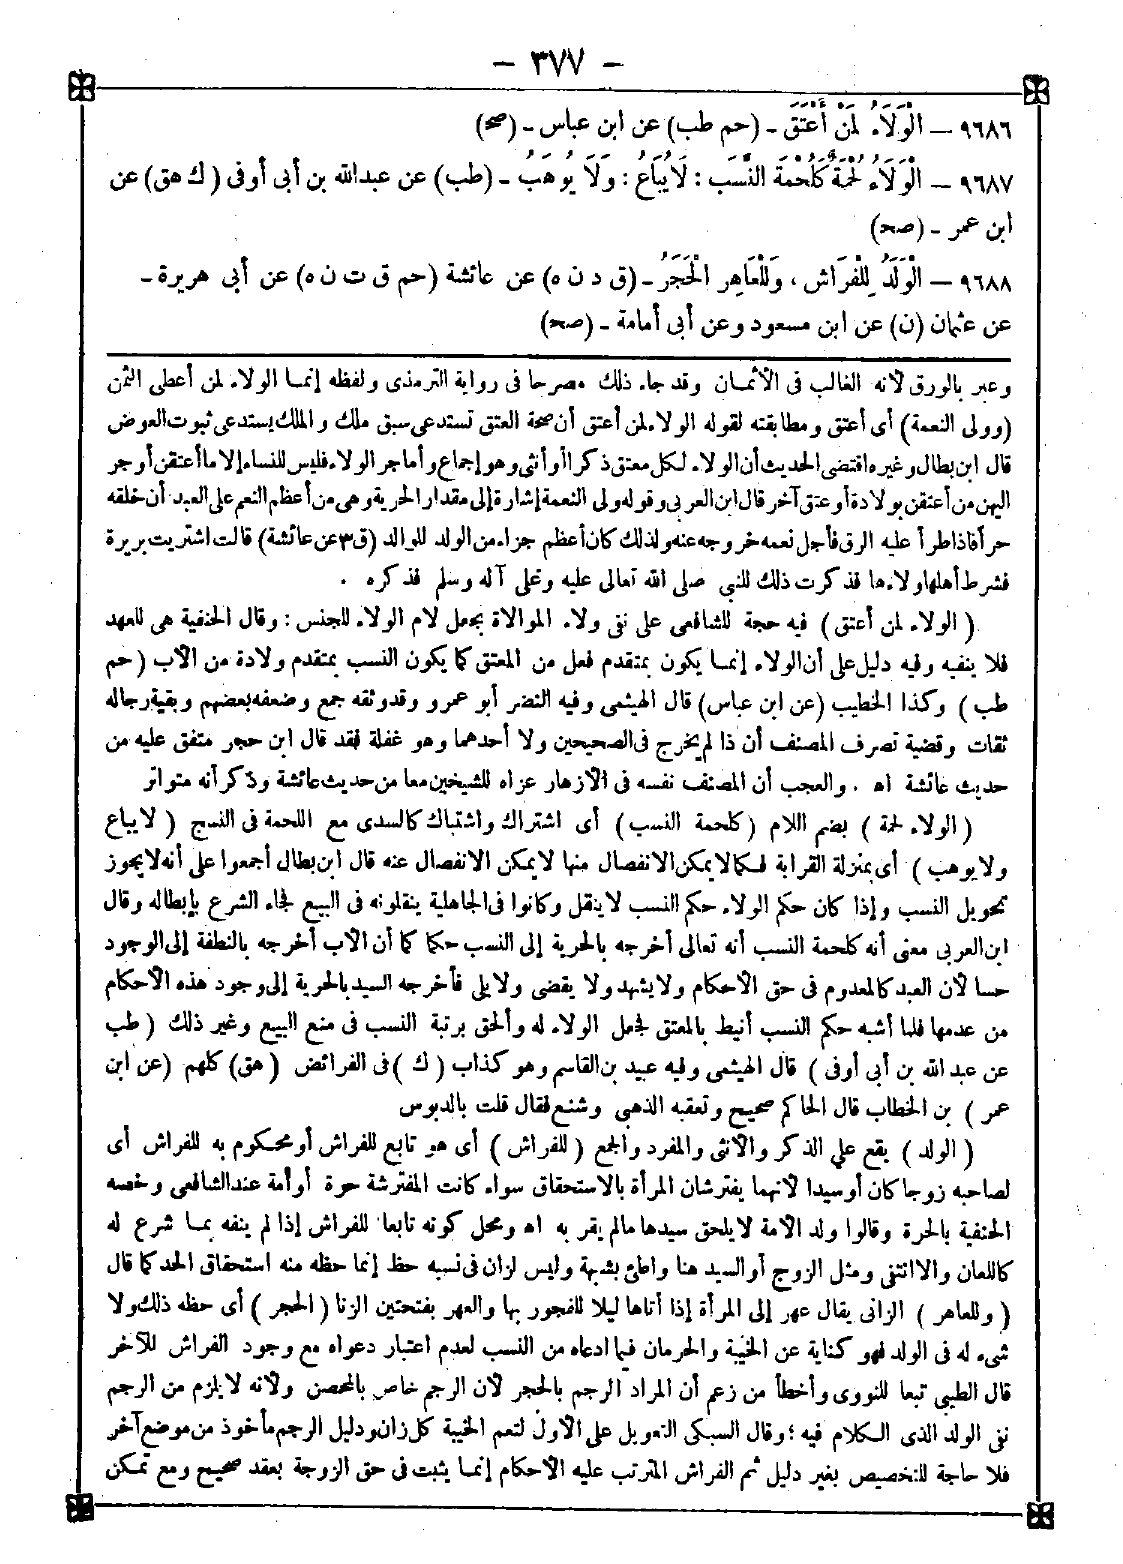 - ٣٧٧ -
٩٦٨٦ – الْوَلَاءُ لِمَنْ أَعْتَقَ - (حم طب) عن ابن عباس - (صح)
٩٦٨٧ – الْوَلَاءُ لُحْمَةٌ كَلُحْمَةِ النَّسَبِ : لَا يُبَاعُ : وَلَا يُوهَبُ - (طب) عن عبدالله بن أبى أوفى (ك هق) عن
ابن عمر - (صح)
٩٦٨٨ – الْوَلَدُ لِلْفِرَاشِ ، وَلِلْعَاهِرِ الْحَجَرُ - (ق د ن ه) عن عائشة (حم ق ت ن ه) عن أبى هريرة -
عن عثمان (ن) عن ابن مسعود وعن أبى أمامة - (صح)
وعبر بالورق لأنه الغالب فى الأثمان وقد جاء ذلك مصرحا فى رواية الترمذى ولفظه إنما الولاء لمن أعطى الثمن
(وولى النعمة) أى أعتق ومطابقته لقوله الولاء لمن أعتق أن صحة العتق تستدعى سبق ملك والملك يستدعى ثبوت العوض
قال ابن بطال وغيره اقتضى الحديث أن الولاء لكل معتق ذكرا أو أنثى وهو إجماع وأما جر الولاء فليس للنساء إلا ما أعتقن أو جر
اليهن من أعتقن بولادة أو عتق آخر قال ابن العربى وقوله ولى النعمة إشارة إلى مقدار الحرية وهى من أعظم النعم على العبد أن خلقه
حرا فاذا طرأ عليه الرق فأجل نعمه خروجه عنه ولذلك كان أعظم جزاء من الولد للوالد (ق ٣ عن عائشة) قالت اشتريت بريرة
فشرط أهلها ولاءها فذكرت ذلك للنبى صلى الله تعالى عليه وعلى آله وسلم فذكره .
( الولاء لمن أعتق ) فيه حجة للشافعى على نفى ولاء الموالاة بجعل لام الولاء للجنس : وقال الحنفية هى للعهد
فلا ينفيه وفيه دليل على أن الولاء إنما يكون بمتقدم فعل من المعتق كما يكون النسب بمتقدم ولادة من الأب (حم
طب ) وكذا الخطيب (عن ابن عباس) قال الهيثمى وفيه النضر أبو عمرو وقد وثقه جمع وضعفه بعضهم وبقية رجاله
ثقات وقضية تصرف المصنف أن ذا لم يخرج فى الصحيحين ولا أحدهما وهو غفلة فقد قال ابن حجر متفق عليه من
حديث عائشة اه . والعجب أن المصنف نفسه فى الأزهار عزاه للشيخين معا من حديث عائشة وذكر أنه متواتر
( الولاء لحمة ) بضم اللام (كلحمة النسب ) أى اشتراك واشتباك كالسدى مع اللحمة فى النسج ( لا يباع
ولا يوهب ) أى بمنزلة القرابة فكما لا يمكن الانفصال منها لا يمكن الانفصال عنه قال ابن بطال أجمعوا على أنه لا يجوز
تحويل النسب وإذا كان حكم الولاء حكم النسب لا ينقل وكانوا فى الجاهلية ينقلونه فى البيع فجاء الشرع بإبطاله وقال
ابن العربى معنى أنه كلحمة النسب أنه تعالى أخرجه بالحرية إلى النسب حكما كما أن الأب أخرجه بالنطفة إلى الوجود
حسا لأن العبد كالمعدوم فى حق الأحكام ولا يشهد ولا يقضى ولا يلى فأخرجه السيد بالحرية إلى وجود هذه الأحكام
من عدمها فلما أشبه حكم النسب أنيط بالمعتق فجعل الولاء له وألحق برتبة النسب فى منع البيع وغير ذلك ( طب
عن عبد الله بن أبى أوفى ) قال الهيثمى وفيه عبيد بن القاسم وهو كذاب ( ك ) فى الفرائض ( هق) كلهم (عن ابن
عمر ) بن الخطاب قال الحاكم صحيح وتعقبه الذهبى وشنع فقال قلت بالدبوس
( الولد ) يقع على الذكر والأنثى والمفرد والجمع ( للفراش ) أى هو تابع للفراش أو محكوم به للفراش أى
لصاحبه زوجا كان أو سيدا لأنهما يفترشان المرأة بالاستحقاق سواء كانت المفترشة حرة أو أمة عند الشافعى وخصه
الحنفية بالحرة وقالوا ولد الأمة لا يلحق سيدها مالم يقر به اه ومحل كونه تابعا للفراش إذا لم ينفه بما شرع له
كاللعان والا انتفى ومثل الزوج أو السيد هنا واطئ بشبهة وليس لزان فى نسبه حظ إنما حظه منه استحقاق الحد كما قال
( وللعاهر ) الزانى يقال عهر إلى المرأة إذا أتاها ليلا للفجور بها والعهر بفتحتين الزنا ( الحجر ) أى حظه ذلك ولا
شىء له فى الولد فهو كناية عن الخيبة والحرمان فيما ادعاه من النسب لعدم اعتبار دعواه مع وجود الفراش للآخر
قال الطيبى تبعا للنووى وأخطأ من زعم أن المراد الرجم بالحجر لأن الرجم خاص بالمحصن ولأنه لا يلزم من الرجم
نفى الولد الذى الكلام فيه ؛ وقال السبكى التعويل على الأول لتعم الخيبة كل زان ودليل الرجم مأخوذ من موضع آخر
فلا حاجة للتخصيص بغير دليل ثم الفراش المترتب عليه الأحكام إنما يثبت فى حق الزوجة بعقد صحيح ومع تمكن